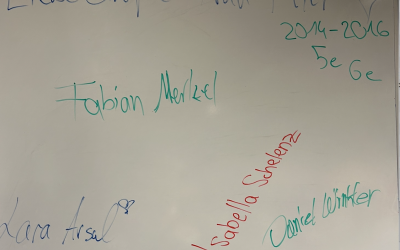 2014-2016
5e
6e
Fabian Merkel
Isabella Schelenz
Lara Arsal
Daniel Winkler